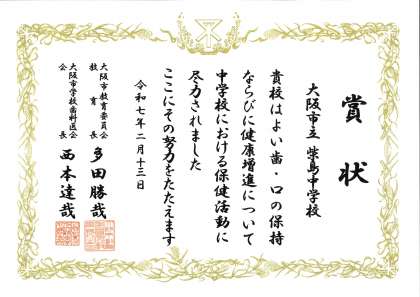 賞状
大阪市立 柴島中学校
貴校はよい歯・口の保持
ならびに健康増進について
中学校における保健活動に
尽力されました
ここにその努力をたたえます
令和七年二月十三日
大阪市教育委員会
教育長 多田勝哉
大阪市学校歯科医会
会長 西本達哉